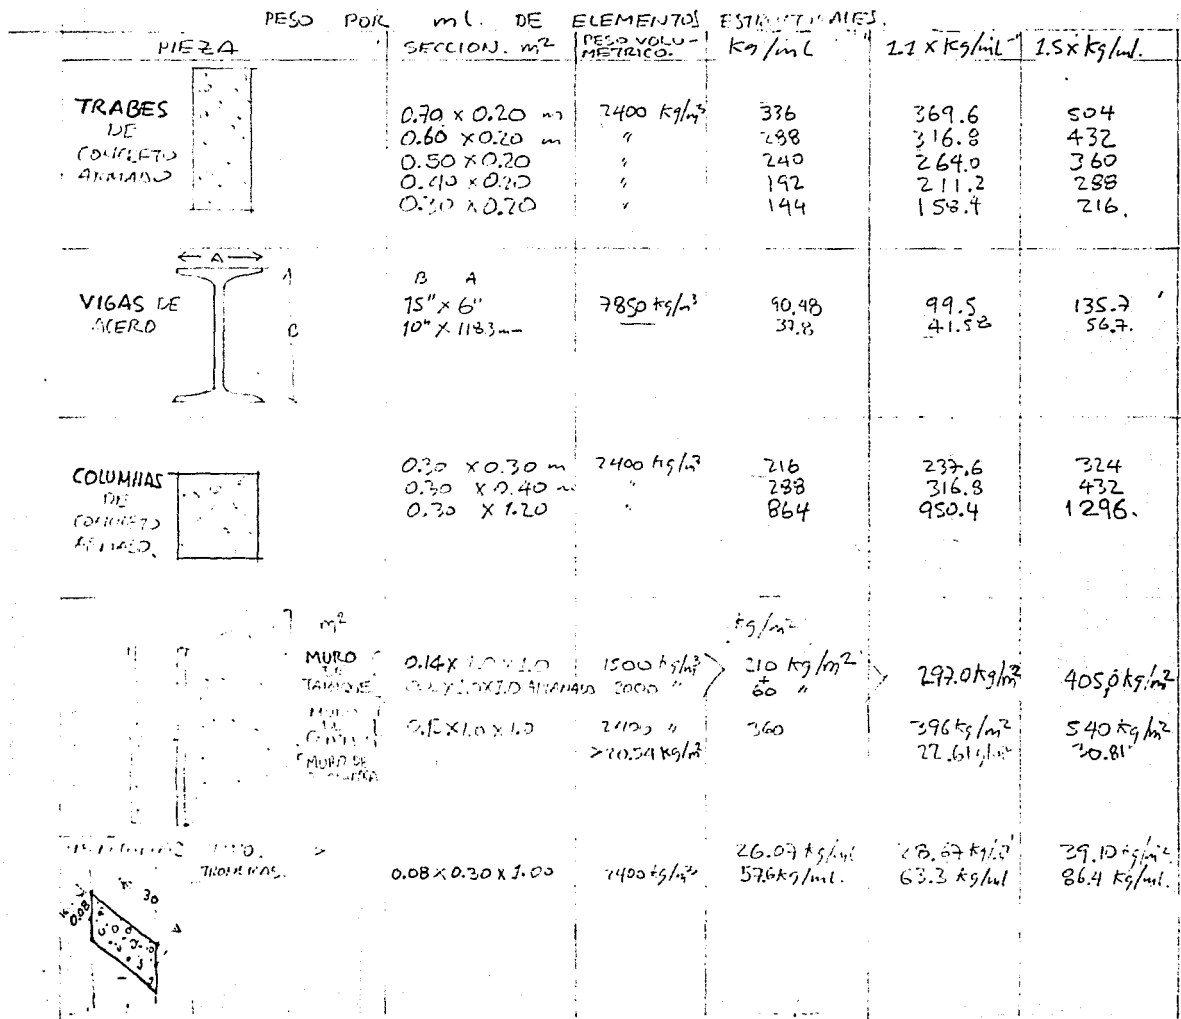 PESO POR ml. DE ELEMENTOS ESTRUCTURALES.
PIEZA SECCION. m² PESO VOLU-METRICO. Kg/mL 1.1 x Kg/mL 1.5 x Kg/ml.
TRABES DE CONCRETO ARMADO
0.70 x 0.20 m 2400 Kg/m³ 336 369.6 504
0.60 x 0.20 m " 288 316.8 432
0.50 x 0.20 " 240 264.0 360
0.40 x 0.20 " 192 211.2 288
0.30 x 0.20 " 144 158.4 216.
A
B A
VIGAS DE ACERO
15" x 6" 7850 kg/m³ 90.48 99.5 135.7
10" x 118.3 mm 37.8 41.58 56.7.
COLUMNAS DE CONCRETO ARMADO.
0.30 x 0.30 m 2400 kg/m³ 216 237.6 324
0.30 x 0.40 m " 288 316.8 432
0.30 x 1.20 " 864 950.4 1296.
m² kg/m²
MURO DE TABIQUE 0.14 x 1.0 x 1.0 1500 kg/m³ 210 kg/m² 297.0 kg/m² 405.0 kg/m²
x 1.0 x 1.0 APLANADO 2000 " + 60 "
MURO DE 0.15 x 1.0 x 1.0 2400 " 360 396 kg/m² 540 kg/m²
MURO DE >20.54 kg/m² 22.61 30.81
26.07 kg/ml 28.67 39.10
0.08 x 0.30 x 1.00 2400 kg/m³ 57.6 kg/ml. 63.3 kg/ml 86.4 kg/ml.
30
0.08